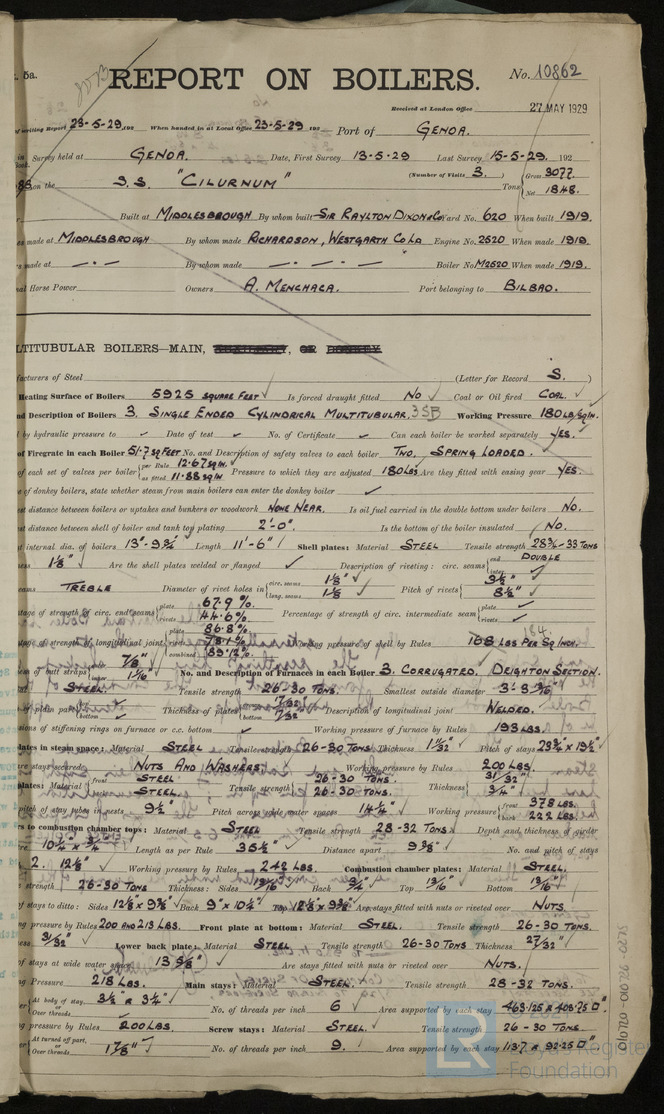 5a.
REPORT ON BOILERS.
No. 10862
Received at London Office 27 MAY 1929
of writing Report 23-5-29 192 When handed in at Local Office 23-5-29 192 Port of GENOA.
Survey held at GENOA. Date, First Survey 13-5-29 Last Survey 15-5-29. 192
on the S.S. "CILURNUM" (Number of Visits 3.) Tons Gross 3077. Net 1848.
Built at MIDDLESBROUGH By whom built SIR RAYLTON DIXON & Co Yard No. 620 When built 1919.
made at MIDDLESBROUGH By whom made RICHARDSON, WESTGARTH Co Ld Engine No. 2520 When made 1919.
made at — · — By whom made — · — · — Boiler No. M2520 When made 1919.
Horse Power Owners A. MENCHACA. Port belonging to BILBAO.
MULTITUBULAR BOILERS—MAIN,
facturers of Steel (Letter for Record S. )
Heating Surface of Boilers 5925 SQUARE FEET Is forced draught fitted NO Coal or Oil fired COAL.
and Description of Boilers 3. SINGLE ENDED CYLINDRICAL MULTITUBULAR, 3SB Working Pressure 180 LB/SQ IN.
by hydraulic pressure to Date of test No. of Certificate Can each boiler be worked separately YES.
of Firegrate in each Boiler 51.7 SQ FEET No. and Description of safety valves to each boiler TWO, SPRING LOADED.
of each set of valves per boiler per Rule 12.67 SQ IN. as fitted 11.88 SQ IN Pressure to which they are adjusted 180 LBS Are they fitted with easing gear YES.
of donkey boilers, state whether steam from main boilers can enter the donkey boiler
distance between boilers or uptakes and bunkers or woodwork NONE NEAR. Is oil fuel carried in the double bottom under boilers NO.
distance between shell of boiler and tank top plating 2'-0". Is the bottom of the boiler insulated NO.
internal dia. of boilers 13"-9¾" Length 11'-6" Shell plates: Material STEEL Tensile strength 28¾-33 TONS
1⅛" Are the shell plates welded or flanged Description of riveting: circ. seams end DOUBLE inter.
TREBLE Diameter of rivet holes in circ. seams 1⅛" long. seams 1⅛ Pitch of rivets 3½" 8½"
of strength of circ. end seams plate 67.9 %. rivets 44.6%. Percentage of strength of circ. intermediate seam plate rivets
of strength of longitudinal joint plate 86.8% rivets combined 89.12% Working pressure of shell by Rules 168 LBS PER SQ INCH.
of butt straps ⅞" 1⅟16" No. and Description of Furnaces in each Boiler 3. CORRUGATED, DEIGHTON SECTION.
STEEL Tensile strength 26-30 TONS. Smallest outside diameter
of plain part bottom Thickness of plates bottom Description of longitudinal joint WELDED.
of stiffening rings on furnace or c.c. bottom Working pressure of furnace by Rules 193 LBS.
plates in steam space: Material STEEL Tensile strength 26-30 TONS Thickness Pitch of stays
stays secured NUTS AND WASHERS Working pressure by Rules 200 LBS.
plates: Material front STEEL STEEL. Tensile strength 26-30 TONS. 26-30 TONS. Thickness 31/32" ¾"
pitch of stay tubes in nests 9½" Pitch across wide water spaces 14¼" Working pressure front 378 LBS. back 222 LBS.
to combustion chamber tops: Material STEEL Tensile strength 28-32 TONS Depth and thickness of girder
10¼ x ¾ Length as per Rule 35½" Distance apart 9⅜" No. and pitch of stays
2. 12⅛" Working pressure by Rules 242 LBS. Combustion chamber plates: Material STEEL.
strength 26-30 TONS Thickness: Sides 13/16" Back ¾" Top 13/16" Bottom 13/16"
of stays to ditto: Sides 12⅛ x 9⅜" Back 9" x 10¼" Top 12⅛ x 9⅜" Are stays fitted with nuts or riveted over NUTS.
pressure by Rules 200 AND 213 LBS. Front plate at bottom: Material STEEL. Tensile strength 26-30 TONS.
31/32" Lower back plate: Material STEEL Tensile strength 26-30 TONS Thickness 27/32"
of stays at wide water space 13⅝" Are stays fitted with nuts or riveted over NUTS.
Pressure 218 LBS. Main stays: Material STEEL. Tensile strength 28-32 TONS.
At body of stay, Over threads 3½" & 3¼" No. of threads per inch 6 Area supported by each stay 463.125 & 408.75 □".
pressure by Rules 200 LBS. Screw stays: Material STEEL. Tensile strength 26-30 TONS.
At turned off part, or Over threads 1⅞" No. of threads per inch 9. Area supported by each stay 113.7 & 92.25 □"
LR
Lloyd's Register
Foundation